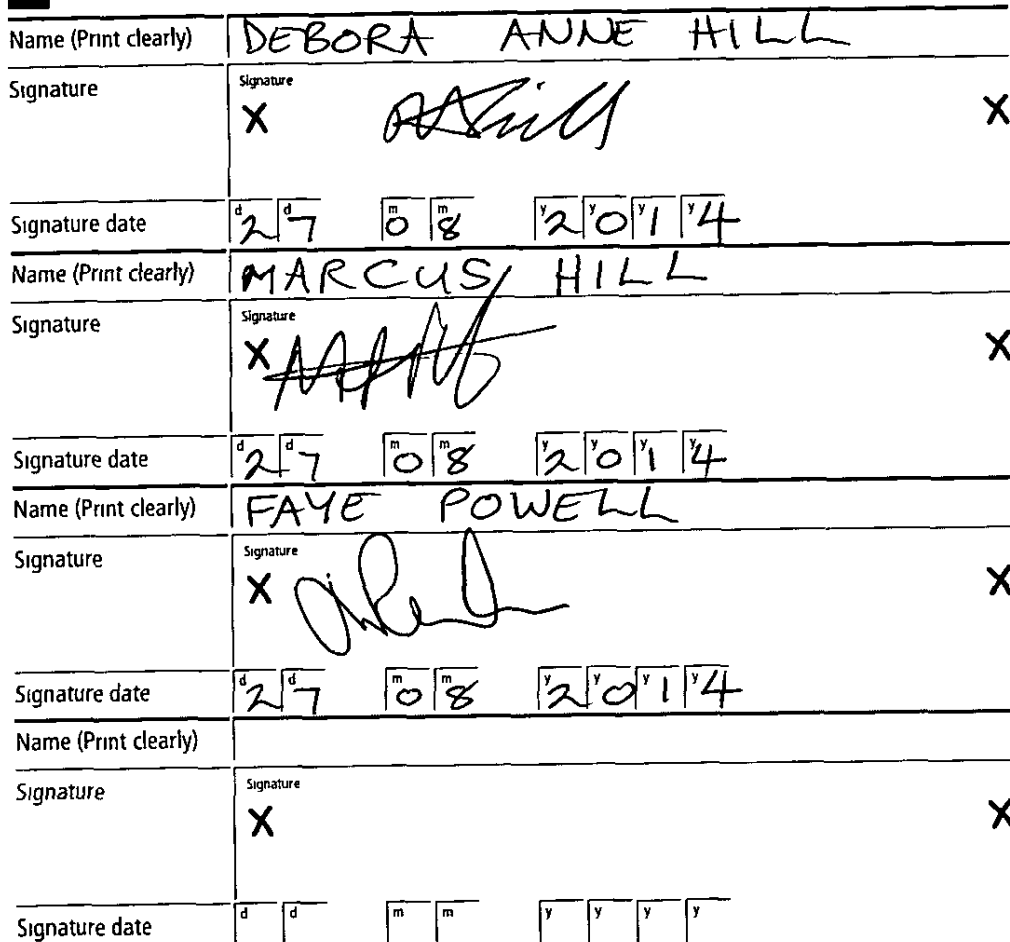 Name (Print clearly) DEBORA ANNE HILL
Signature Signature
X X
Signature date d 2 d 7 m 0 m 8 y 2 y 0 y 1 y 4
Name (Print clearly) MARCUS HILL
Signature Signature
X X
Signature date d 2 d 7 m 0 m 8 y 2 y 0 y 1 y 4
Name (Print clearly) FAYE POWELL
Signature Signature
X X
Signature date d 2 d 7 m 0 m 8 y 2 y 0 y 1 y 4
Name (Print clearly)
Signature Signature
X X
Signature date d d m m y y y y